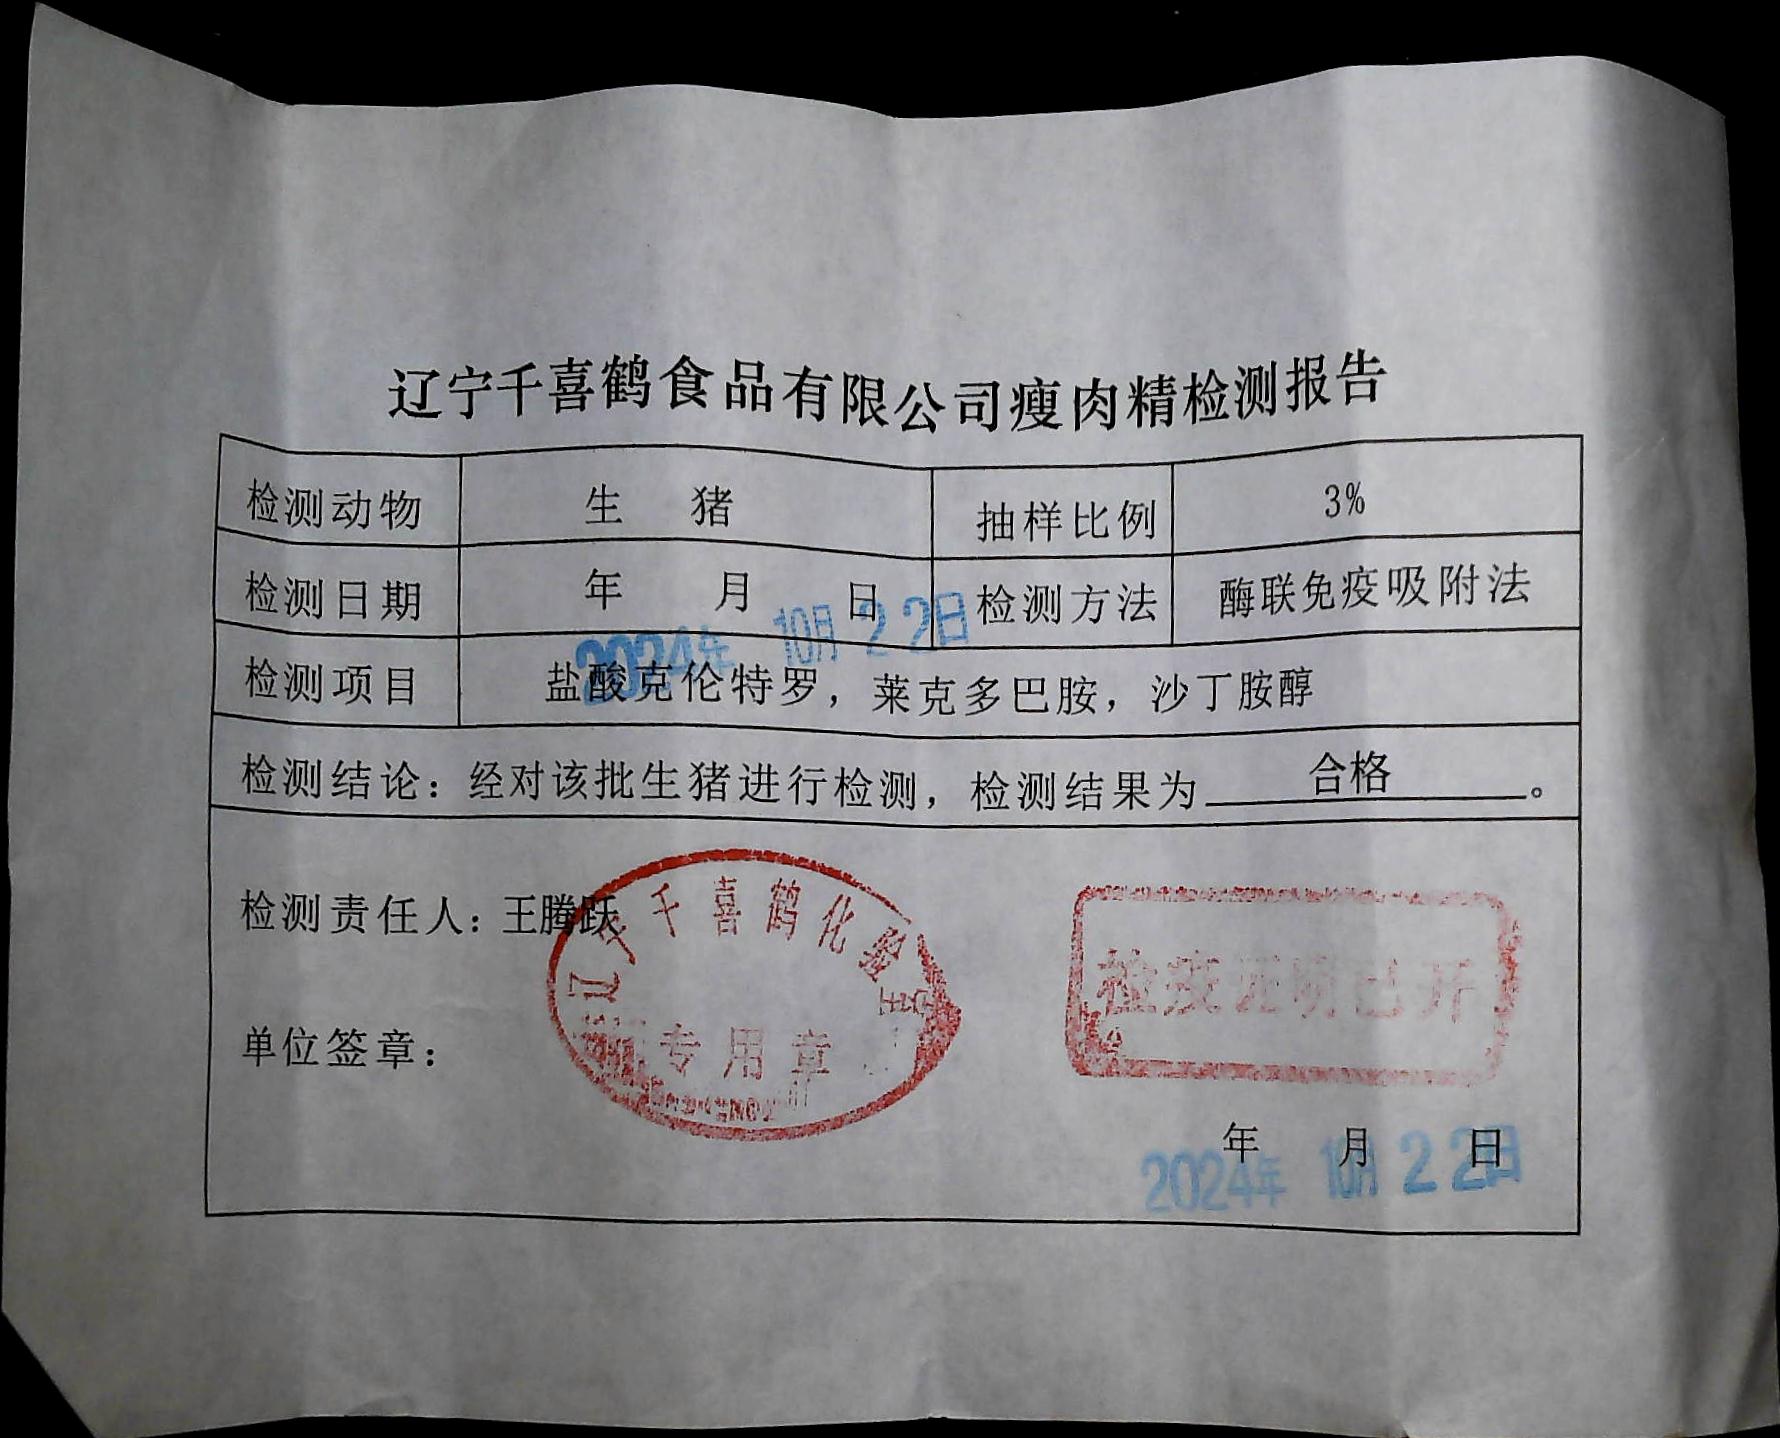 辽宁千喜鹤食品有限公司瘦肉精检测报告
检测动物 生 猪 抽样比例 3%
检测日期 年 月 日 检测方法 酶联免疫吸附法
2024年 10月 22日
检测项目 盐酸克伦特罗，莱克多巴胺，沙丁胺醇
检测结论：经对该批生猪进行检测，检测结果为 合格 。
检测责任人：王腾跃
辽宁千喜鹤化验室
专用章
检疫证明已开
单位签章：
年 月 日
2024年 10月 22日